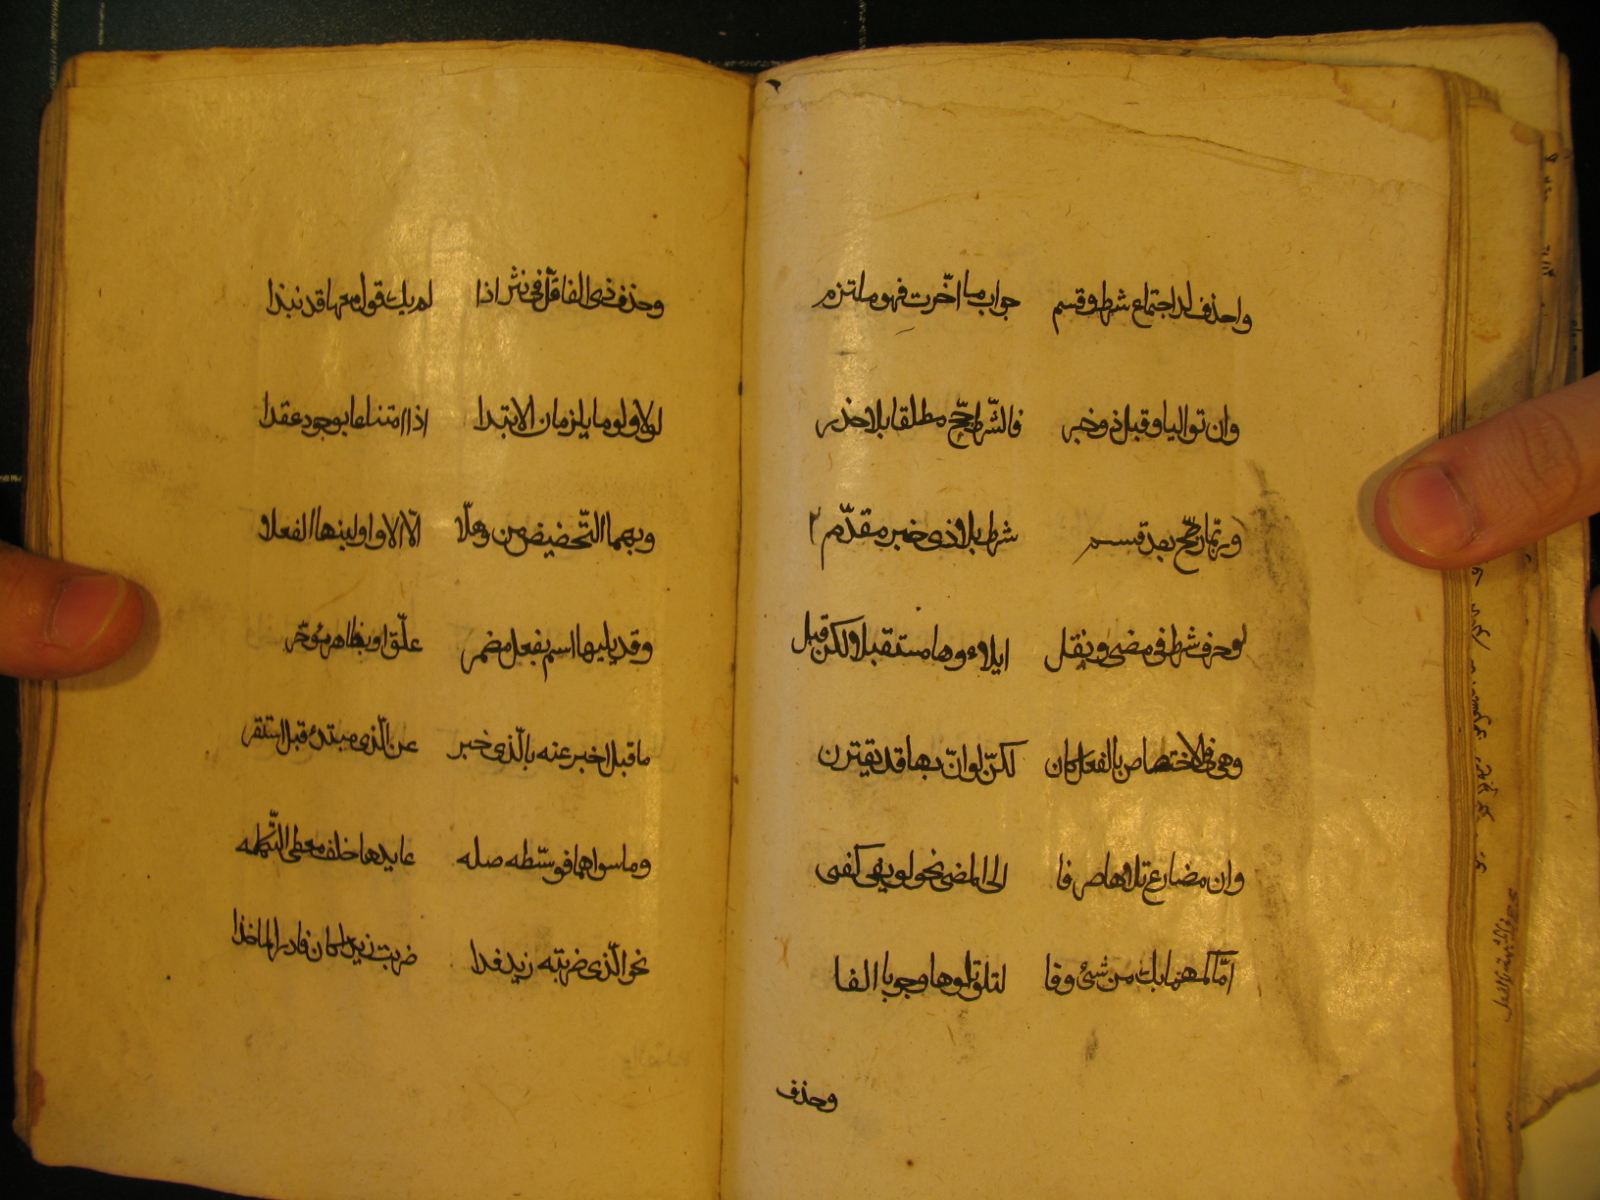 واحذف لد اجتماع شرط وقسم جواب ما اخّرت فهو ملتزم
وان تواليا وقبل ذو خبر فالشّرط رجّح مطلقا بلا حذر
وربّما رجّح بعد قسم شرط بلا ذى خبر مقدّم
لو حرف شرط فى مضى ويقل ايلاءوها مستقبلا ولكن قبل
وهى فى الاختصاص بالفعل كان لكنّ لو انّ بها قد يقترن
وان مضارع تلاها صرفا الى المضى نحو لو يفى كفى
امّا كمهما يك من شئ وفا لتلو تلوها وجوبا الفا
وحذف
وحذف ذى الفا قلّ فى نثر اذا لم يك قول معها قد نبذا
لولا ولوما يلزمان الابتدا اذا امتناعا بوجود عقدا
وبهما التّحضيض من وهلّا الّا الا واولينها الفعلا
وقد يليها اسم بفعل مضمر علّق او بظاهر مؤخّر
ما قبل اخبر عنه بالّذى خبر عن الّذى مبتدئ قبل استقر
وما سواهما فوسّطه صله عايدها خلف معطى التّكمله
نحو الّذى ضربته زيد فذا ضربت زيدا كان فادر الماخذا